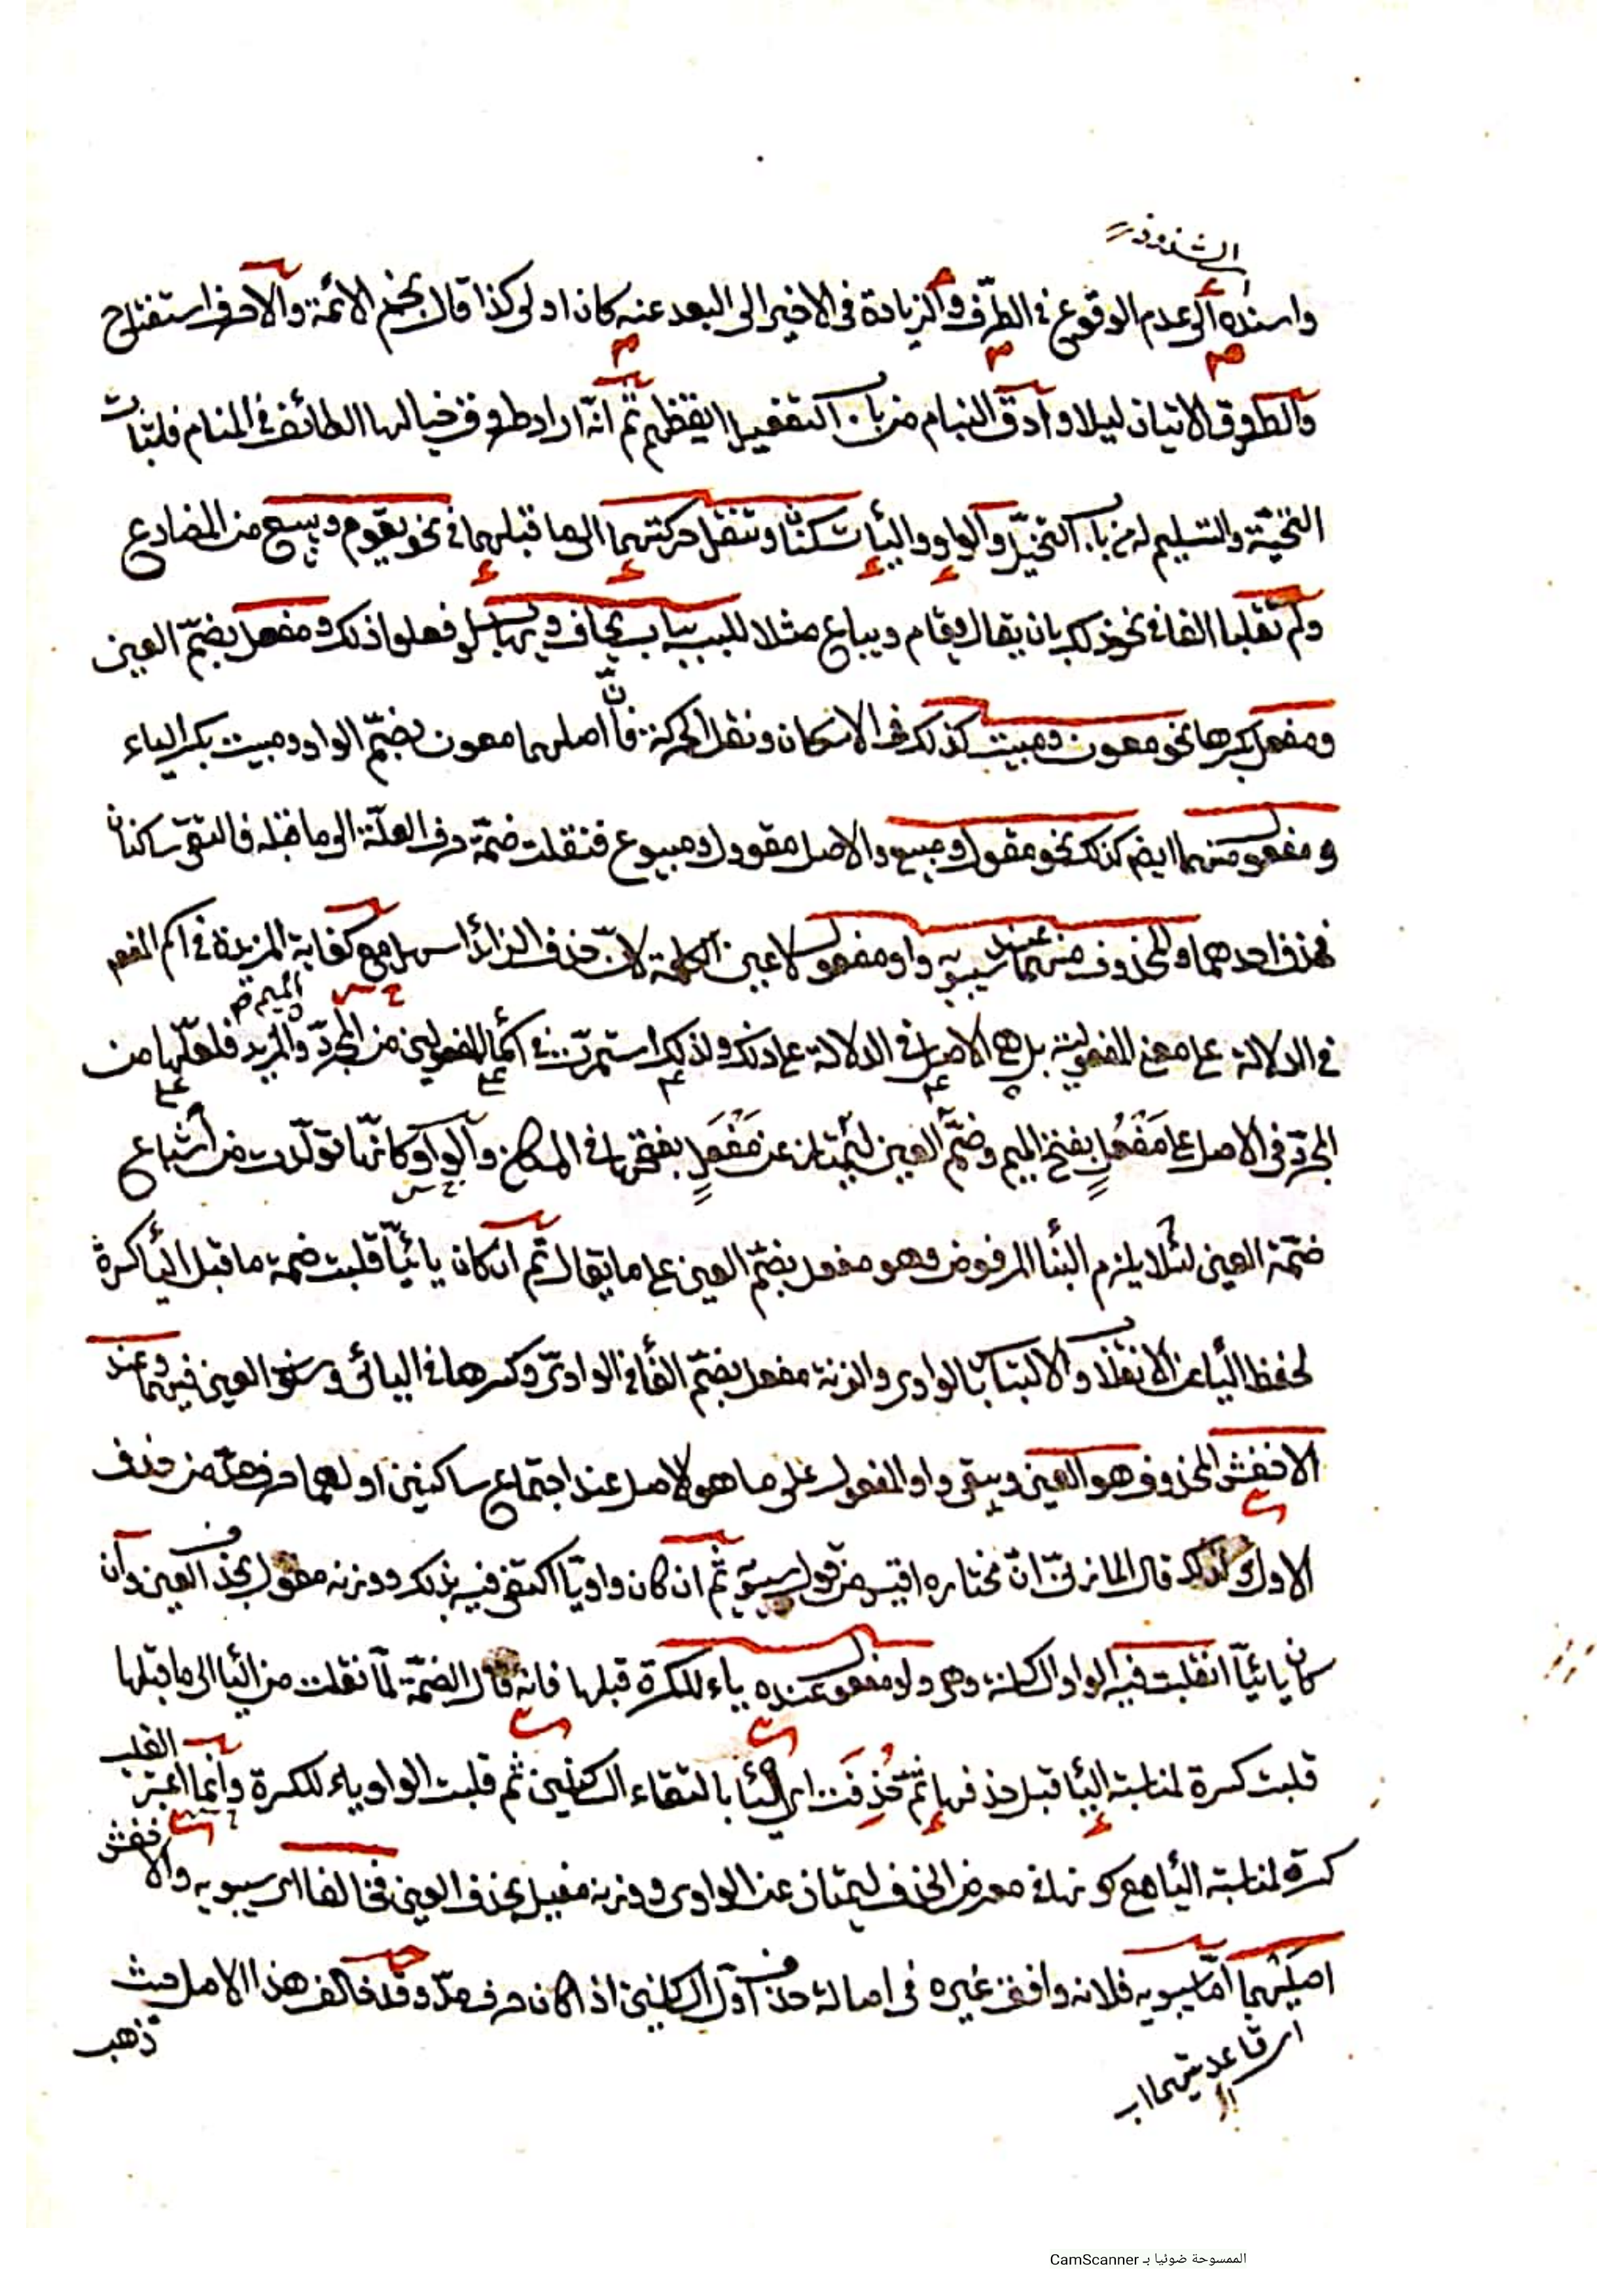 الشذوذ
واسنده الى عدم الوقوع في الطرف والزيادة في الاخير الى البعد عنه كان اولى كذا قال نجم الائمة والا حرف استفتاح
والطروق الاتيان ليلا وارق النيام من باب التفعيل ايقظهم ثم انه اراد طروق خيالها الطائف في المنام فلتبات
التحية والتسليم له من باب التخيل والواو والياء تسكنان وتنقل حركتهما الى ما قبلهما في نحو يقوم ويبيع من المضارع
ولم تقلبا الفا في نحو ذلك بان يقال يقام ويباع مثلا للبسه بباب يخاف ويهاب لو فعلوا ذلك ومفعل بضم العين
ومفعل بكسرها نحو معون ومبيت كذلك في الاسكان ونقل الحركة فان اصلهما معون بضم الواو ومبيت بكسر الياء
ومفعول منهما ايضم كذلك نحو مقول ومبيع والاصل مقوول ومبيوع فنقلت ضمة حرف العلة الى ما قبله فالتقى ساكنان
فحذف احدهما والمحذوف منهما عند سيبويه واو مفعول لا عين الكلمة لان حذف الزائد اسهل مع كفاية المزيدة في اسم المفعم
الميم
في الدلالة على معنى المفعولية بل هي الاصل في الدلالة على ذلك ولذلك استمرت في اسماء المفعولين من المجرد والمزيد فلعلها من
المجرد في الاصل على مَفْعُلٍ بفتح الميم وضم العين ليمتاز عن مَفْعَلٍ بفتحها في المكان والواو كانها تولدت من اشباع
ضمة العين لئلا يلزم البناء المرفوض وهو مفعل بضم العين على ما يقال ثم ان كان يائيا قلبت ضمة ما قبل الياء كسرة
لحفظ الياء عن الانقلاب والالتباس بالواوى والزنة مفعل بضم الفاء في الواوى وكسرها في اليائى وسكون العين فيهما وعند
الاخفش المحذوف هو العين ويبقى واو المفعول على ما هو الاصل عند اجتماع ساكنين اولهما حرف مد من حذف
الاول كذلك قال المازنى ان مختاره اقيس من قول سيبويه ثم ان كان واويا اكتفى فيه بذلك ووزنه مفول بحذف العين وان
كان يائيا انقلبت فيه الواو الساكنة وهى واو مفعول عنده ياء للكسرة قبلها فانه قال الضمة لما نقلت من الياء الى ما قبلها
قلبت كسرة لمناسبة الياء قبل حذفها ثم حُذِفَت اى الياء بالتقاء الساكنين ثم قلبت الواو ياء للكسرة وانما اعتبر القلب
كسرة لمناسبة الياء مع كونها في معرض الحذف ليمتاز عن الواوى ووزنه مفيل بحذف العين فخالفا اى سيبويه والاخفش
اصليهما اما سيبويه فلانه وافق غيره في اصالة حذف اول الساكنين اذا كان حرف مد وقد خالف هذا الاصل حيث
ذهب
اى قاعدتيهما
الممسوحة ضوئيا بـ CamScanner